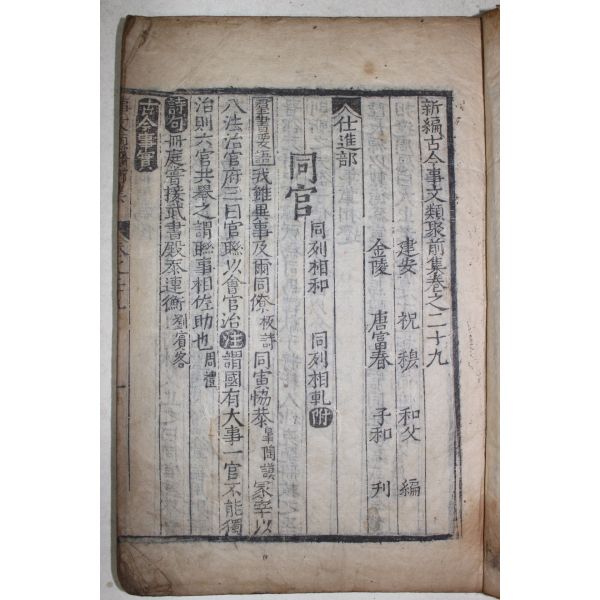 新編古今事文類聚前集卷之二十九
建安 祝穆 和父 編
金陵 唐富春 子和 刊
仕進部
同官 同列相和 同列相軋附
羣書要語我雖異事及爾同僚板詩同寅恊恭皐陶謨冢宰以
八法治官府三曰官聯以會官治注謂國有大事一官不能獨
治則六官共擧之謂聯事相佐助也周禮
詩句冊庭嘗接武書殿忝連衡劉賓客
古今事實